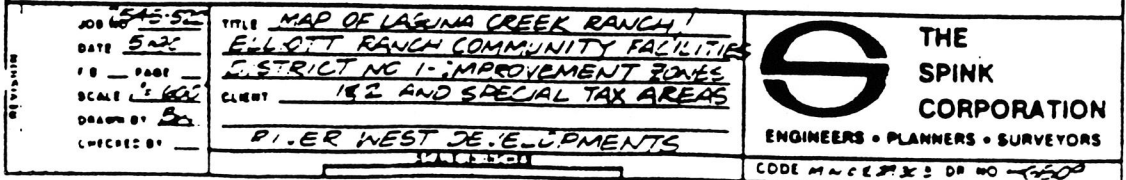 REVISION
JOB NO 545-52
DATE 5-20
F B __ PAGE __
SCALE 1"=600'
DRAWN BY
CHECKED BY
TITLE MAP OF LAGUNA CREEK RANCH/
ELLIOTT RANCH COMMUNITY FACILITIES
DISTRICT NO 1 - IMPROVEMENT ZONES
1&2 AND SPECIAL TAX AREAS
CLIENT
RIVER WEST DEVELOPMENTS
THE
SPINK
CORPORATION
ENGINEERS • PLANNERS • SURVEYORS
CODE DR NO